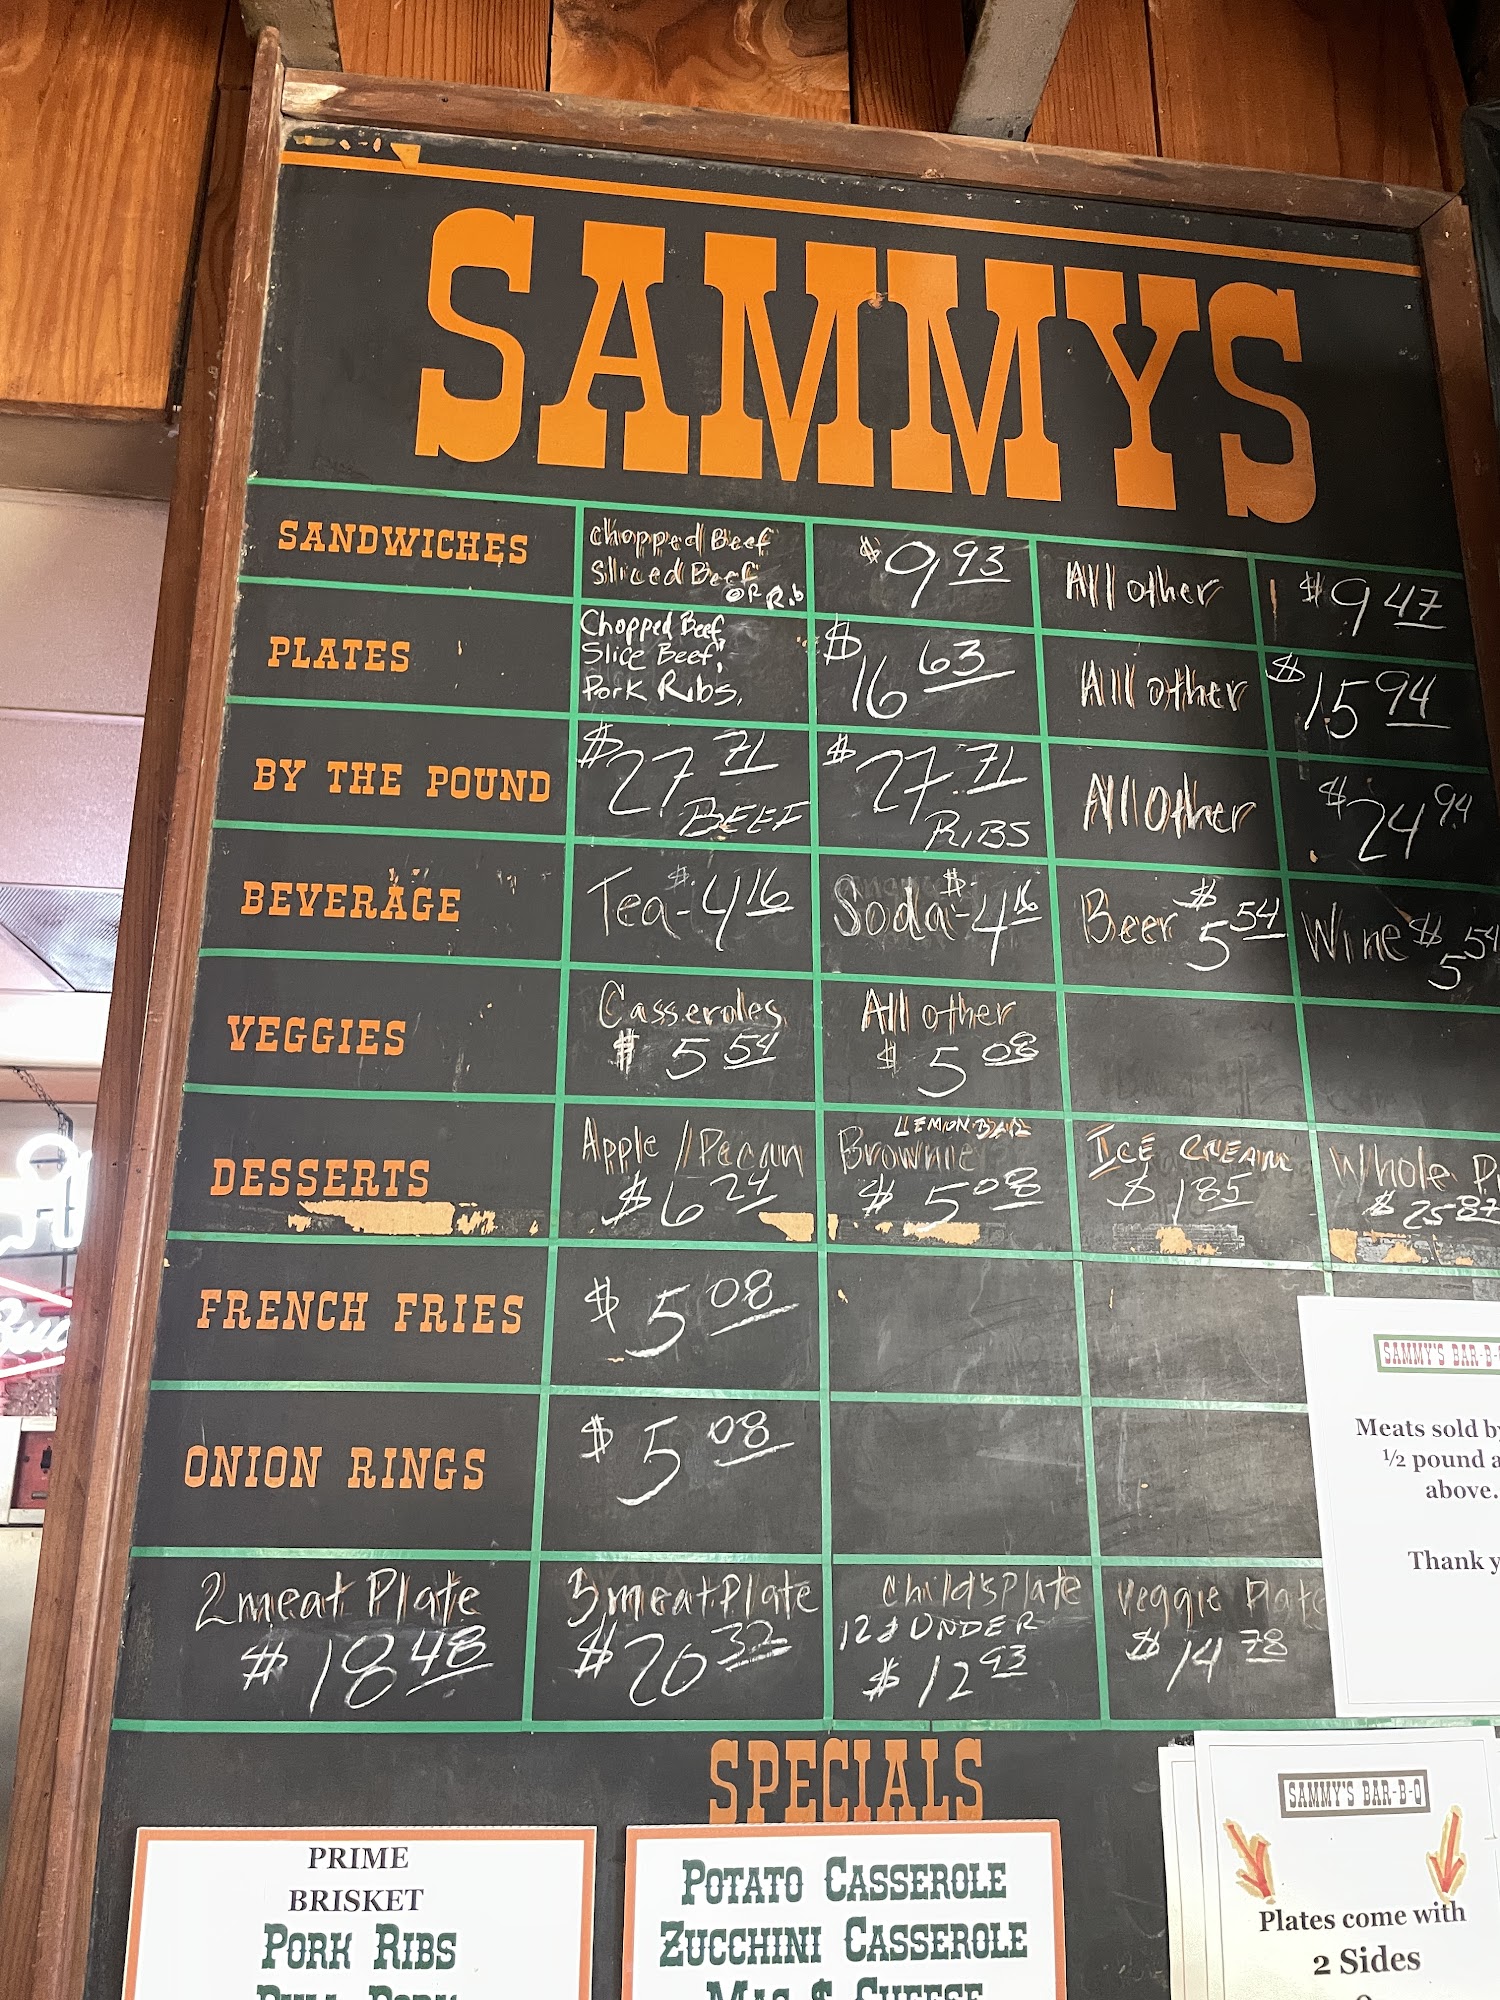 SAMMYS
SANDWICHES
Chopped Beef
Sliced Beef
OR Rib
$9.93
All other
$9.47
PLATES
Chopped Beef,
Slice Beef,
Pork Ribs,
$16.63
All other
$15.94
BY THE POUND
$27.71
BEEF
$27.71
RIBS
All Other
$24.94
BEVERAGE
Tea - $4.16
Soda - $4.16
Beer $5.54
Wine $5.54
VEGGIES
Casseroles
$5.54
All other
$5.08
DESSERTS
Apple / Pecan
$6.24
LEMON BAR
Brownie
$5.08
ICE CREAM
$1.85
Whole
$25.87
FRENCH FRIES
$5.08
ONION RINGS
$5.08
2 meat Plate
$18.48
3 meat Plate
$20.32
Child's Plate
12 & UNDER
$12.93
Veggie Plate
$14.78
SAMMY'S BAR-B-
Meats sold by
½ pound a
above.
Thank y
SPECIALS
PRIME
BRISKET
PORK RIBS
POTATO CASSEROLE
ZUCCHINI CASSEROLE
MAC & CHEESE
SAMMY'S BAR-B-Q
Plates come with
2 Sides